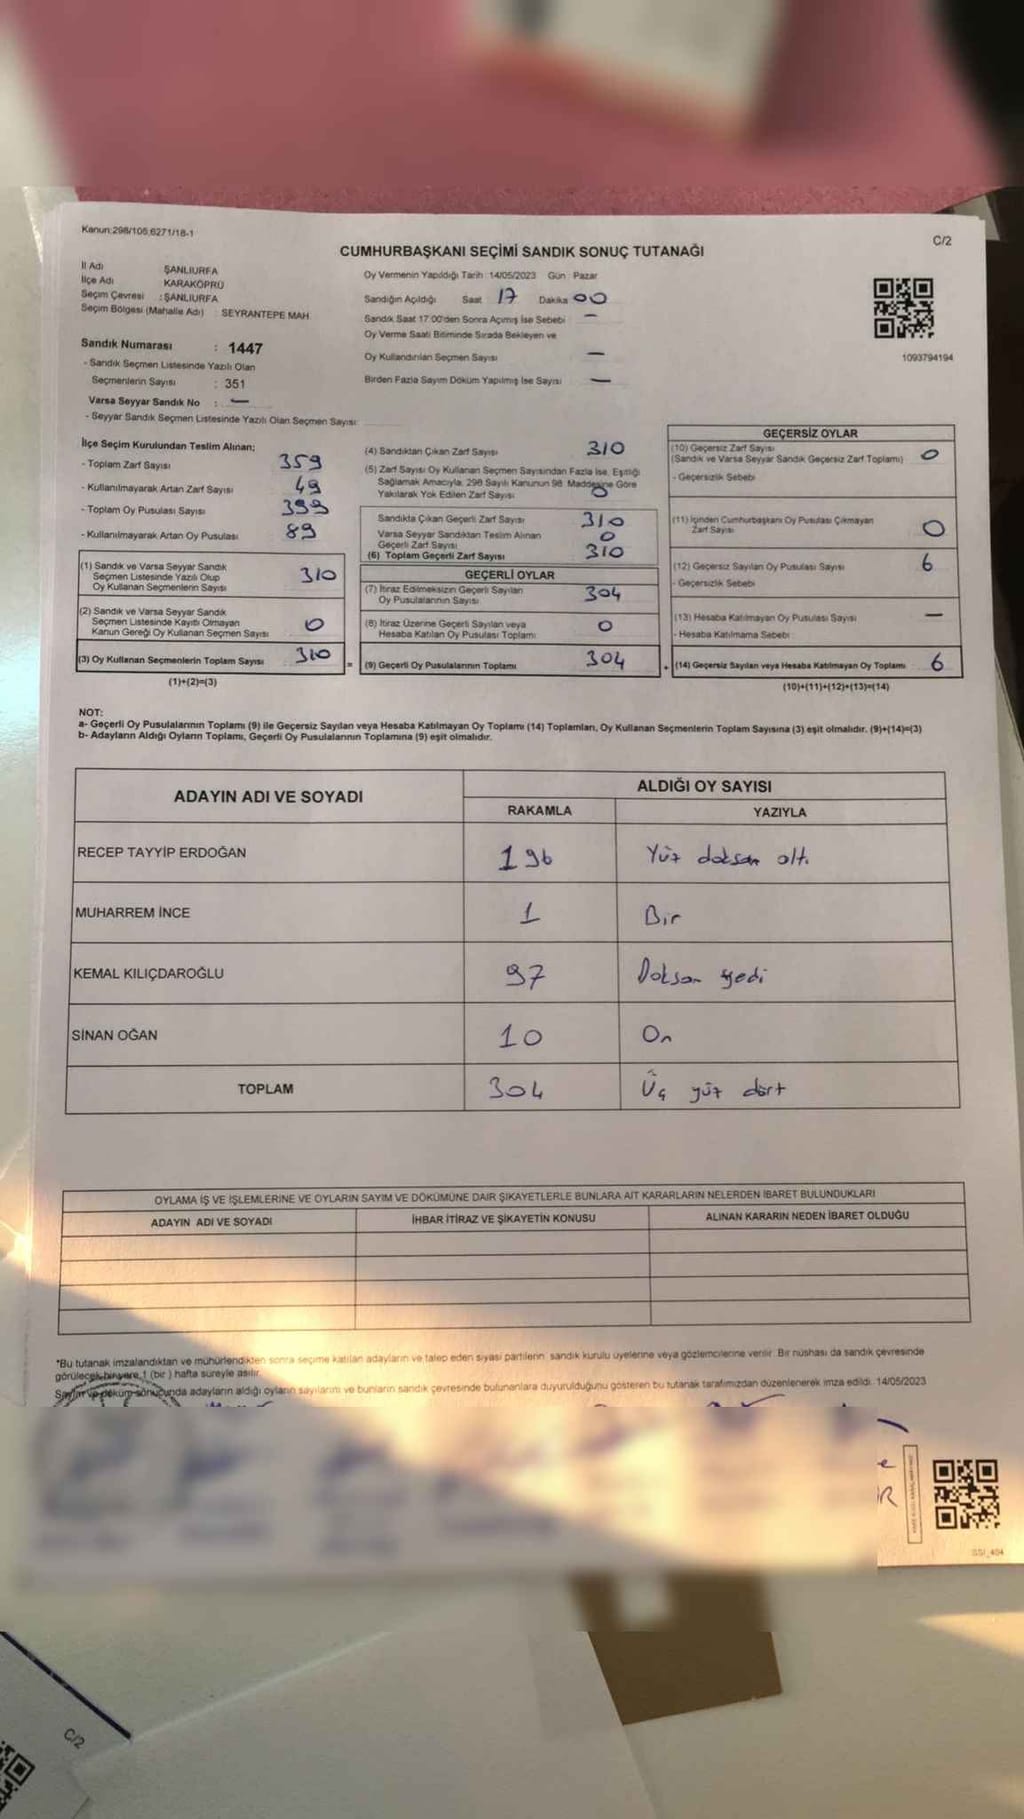 Kanun:298/105,6271/18-1
C/2
CUMHURBAŞKANI SEÇİMİ SANDIK SONUÇ TUTANAĞI
İl Adı ŞANLIURFA
İlçe Adı KARAKÖPRÜ
Seçim Çevresi : ŞANLIURFA
Seçim Bölgesi (Mahalle Adı) SEYRANTEPE MAH
Sandık Numarası : 1447
- Sandık Seçmen Listesinde Yazılı Olan
Seçmenlerin Sayısı : 351
Varsa Seyyar Sandık No : —
- Seyyar Sandık Seçmen Listesinde Yazılı Olan Seçmen Sayısı:
Oy Vermenin Yapıldığı Tarih :14/05/2023 Gün : Pazar
Sandığın Açıldığı Saat 17 Dakika 00
Sandık Saat 17:00'den Sonra Açımış İse Sebebi —
Oy Verme Saati Bitiminde Sırada Bekleyen ve
Oy Kullandırılan Seçmen Sayısı —
Birden Fazla Sayım Döküm Yapılmış İse Sayısı —
1093794194
İlçe Seçim Kurulundan Teslim Alınan;
- Toplam Zarf Sayısı 359
- Kullanılmayarak Artan Zarf Sayısı 49
- Toplam Oy Pusulası Sayısı 399
- Kullanılmayarak Artan Oy Pusulası 89
(1) Sandık ve Varsa Seyyar Sandık
Seçmen Listesinde Yazılı Olup
Oy Kullanan Seçmenlerin Sayısı 310
(2) Sandık ve Varsa Seyyar Sandık
Seçmen Listesinde Kayıtlı Olmayan
Kanun Gereği Oy Kullanan Seçmen Sayısı 0
(3) Oy Kullanan Seçmenlerin Toplam Sayısı 310
(1)+(2)=(3)
(4) Sandıktan Çıkan Zarf Sayısı 310
(5) Zarf Sayısı Oy Kullanan Seçmen Sayısından Fazla İse, Eşitliği
Sağlamak Amacıyla, 298 Sayılı Kanunun 98. Maddesine Göre
Yakılarak Yok Edilen Zarf Sayısı 0
Sandıkta Çıkan Geçerli Zarf Sayısı 310
Varsa Seyyar Sandıktan Teslim Alınan
Geçerli Zarf Sayısı 0
(6) Toplam Geçerli Zarf Sayısı 310
GEÇERLİ OYLAR
(7) İtiraz Edilmeksizin Geçerli Sayılan
Oy Pusulalarının Sayısı 304
(8) İtiraz Üzerine Geçerli Sayılan veya
Hesaba Katılan Oy Pusulası Toplamı 0
= (9) Geçerli Oy Pusulalarının Toplamı 304
GEÇERSİZ OYLAR
(10) Geçersiz Zarf Sayısı
(Sandık ve Varsa Seyyar Sandık Geçersiz Zarf Toplamı) 0
- Geçersizlik Sebebi
(11) İçinden Cumhurbaşkanı Oy Pusulası Çıkmayan
Zarf Sayısı 0
(12) Geçersiz Sayılan Oy Pusulası Sayısı 6
- Geçersizlik Sebebi
(13) Hesaba Katılmayan Oy Pusulası Sayısı —
- Hesaba Katılmama Sebebi
+ (14) Geçersiz Sayılan veya Hesaba Katılmayan Oy Toplamı 6
(10)+(11)+(12)+(13)=(14)
NOT:
a- Geçerli Oy Pusulalarının Toplamı (9) ile Geçersiz Sayılan veya Hesaba Katılmayan Oy Toplamı (14) Toplamları, Oy Kullanan Seçmenlerin Toplam Sayısına (3) eşit olmalıdır. (9)+(14)=(3)
b- Adayların Aldığı Oyların Toplamı, Geçerli Oy Pusulalarının Toplamına (9) eşit olmalıdır.
ADAYIN ADI VE SOYADI ALDIĞI OY SAYISI
RAKAMLA YAZIYLA
RECEP TAYYİP ERDOĞAN 196 Yüz doksan altı
MUHARREM İNCE 1 Bir
KEMAL KILIÇDAROĞLU 97 Doksan yedi
SİNAN OĞAN 10 On
TOPLAM 304 Üç yüz dört
OYLAMA İŞ VE İŞLEMLERİNE VE OYLARIN SAYIM VE DÖKÜMÜNE DAİR ŞİKAYETLERLE BUNLARA AİT KARARLARIN NELERDEN İBARET BULUNDUKLARI
ADAYIN ADI VE SOYADI İHBAR İTİRAZ VE ŞİKAYETİN KONUSU ALINAN KARARIN NEDEN İBARET OLDUĞU
*Bu tutanak imzalandıktan ve mühürlendikten sonra seçime katılan adayların ve talep eden siyasi partilerin, sandık kurulu üyelerine veya gözlemcilerine verilir. Bir nüshası da sandık çevresinde
görülecek bir yere 1 (bir) hafta süreyle asılır.
Sayım ve döküm sonucunda adayların aldığı oyların sayılarını ve bunların sandık çevresinde bulunanlara duyurulduğunu gösteren bu tutanak tarafımızdan düzenlenerek imza edildi. 14/05/2023
C/2